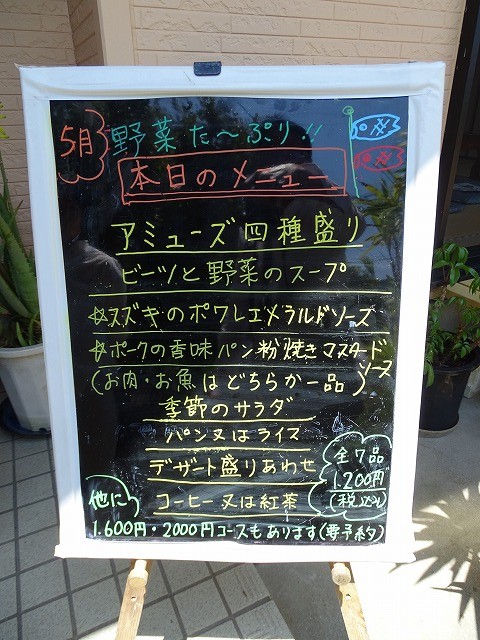 5月
野菜た〜ぷり!!
本日のメニュー
アミューズ四種盛り
ビーツと野菜のスープ
☆スズキのポワレエメラルドソース
☆ポークの香味パン粉焼きマスタードソース
(お肉・お魚はどちらか一品)
季節のサラダ
パン又はライス
デザート盛りあわせ
コーヒー又は紅茶
全7品
1.200円
(税込)
他に
1.600円・2000円コースもあります(要予約)